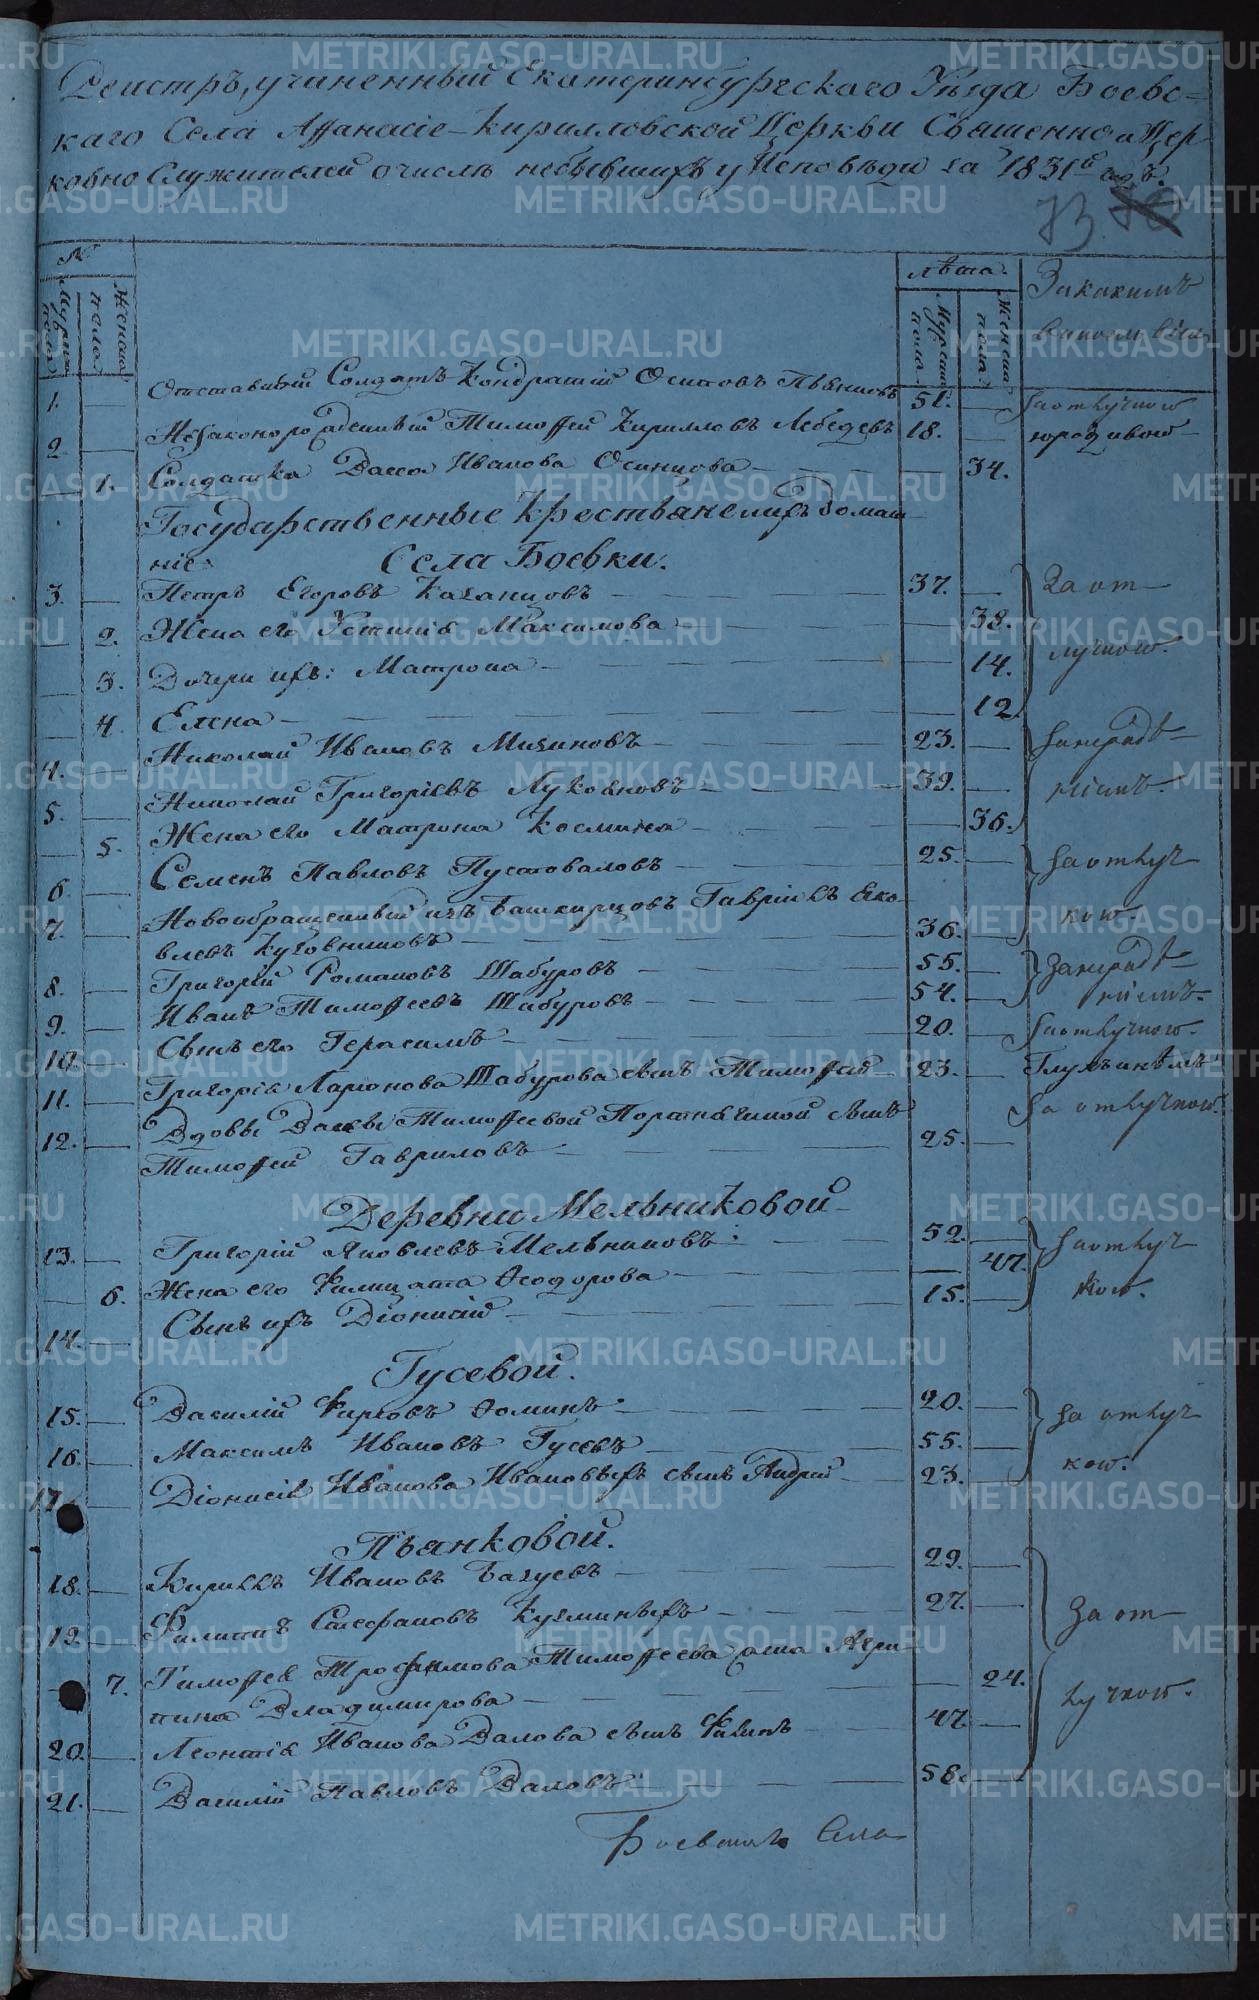 Реистръ, учиненный Екатеринбургскаго Уѣзда Боевс-
каго Села Афанасіе-Кирилловской Церкви Священно и Цер
ковно Служителей о числѣ небывшихъ у Исповѣди за 1831й годъ.
73
№ Лѣта. За какимъ
Мужска пола Женска пола Мужска пола Женска пола
1. — Отставный Солдатъ Кондратій Осиповъ 51. — За отлучкою
2 — Незаконорожденный Тимоффей Кирилловъ Лебедевъ 18. — юродивой
— 1. Солдатка Васса Иванова Осинцова — 34.
Государственные Крестьяне и ихъ домаш
ніе.
Села Боевки:
3. — Петръ Егоровъ Казанцовъ 37. — За от
— 2. Жена его Устинія Максимова — 38. лучкою.
— 3. Дочери ихъ: Матрона — 14.
— 4. Елена — 12
4. — Николай Ивановъ 23. — За нерадѣ
5. — Николай Григоріевъ 39. — ніемъ.
— 5. Жена его Матрона Космина — 36.
6 — Семенъ Павловъ Пустоваловъ 25. — За отлуч
7. — Новообращенный изъ Башкирцовъ Гавріилъ Яко
влевъ 36. — кою.
8. — Григорій Романовъ Шабуровъ 55. — За нерадѣ
9. — Иванъ Тимоффеевъ Шабуровъ 54. — ніемъ.
10. — Сынъ его Герасимъ 20. — За отлучкою.
11. — Григорія Ларіонова Шабурова сынъ Тимоффей 23. — Глухъ и нѣмъ
12. — Вдовы Тимоффеевой сынъ За отлучкою.
Тимоффей Гавриловъ 25. —
Деревни Мельниковой
13. — Григорій Яковлевъ Мельниковъ 52. — За отлуч
— 6. Жена его Филицата Ѳеодорова — 47. кою.
14. — Сынъ ихъ Діонисій 15. —
Гусевой.
15. — Василій Фирсовъ Ѳоминъ 20. — За отлуч
16. — Максимъ Ивановъ Гусевъ 55. — кою.
17 — Діонисія Иванова Ивановыхъ сынъ Андрей 23. —
Пьянковой.
18. — Кириллъ Ивановъ 29. — За от
19 — Филиппъ Стефановъ Кузминыхъ 27. — лучкою.
— 7. Тимоффея Трофимова Тимоффеева жена Агри
пина Владимирова — 24.
20. — Леонтія Иванова Валова сынъ 47 —
21. — Василій Павловъ Валовъ 58. —
Села